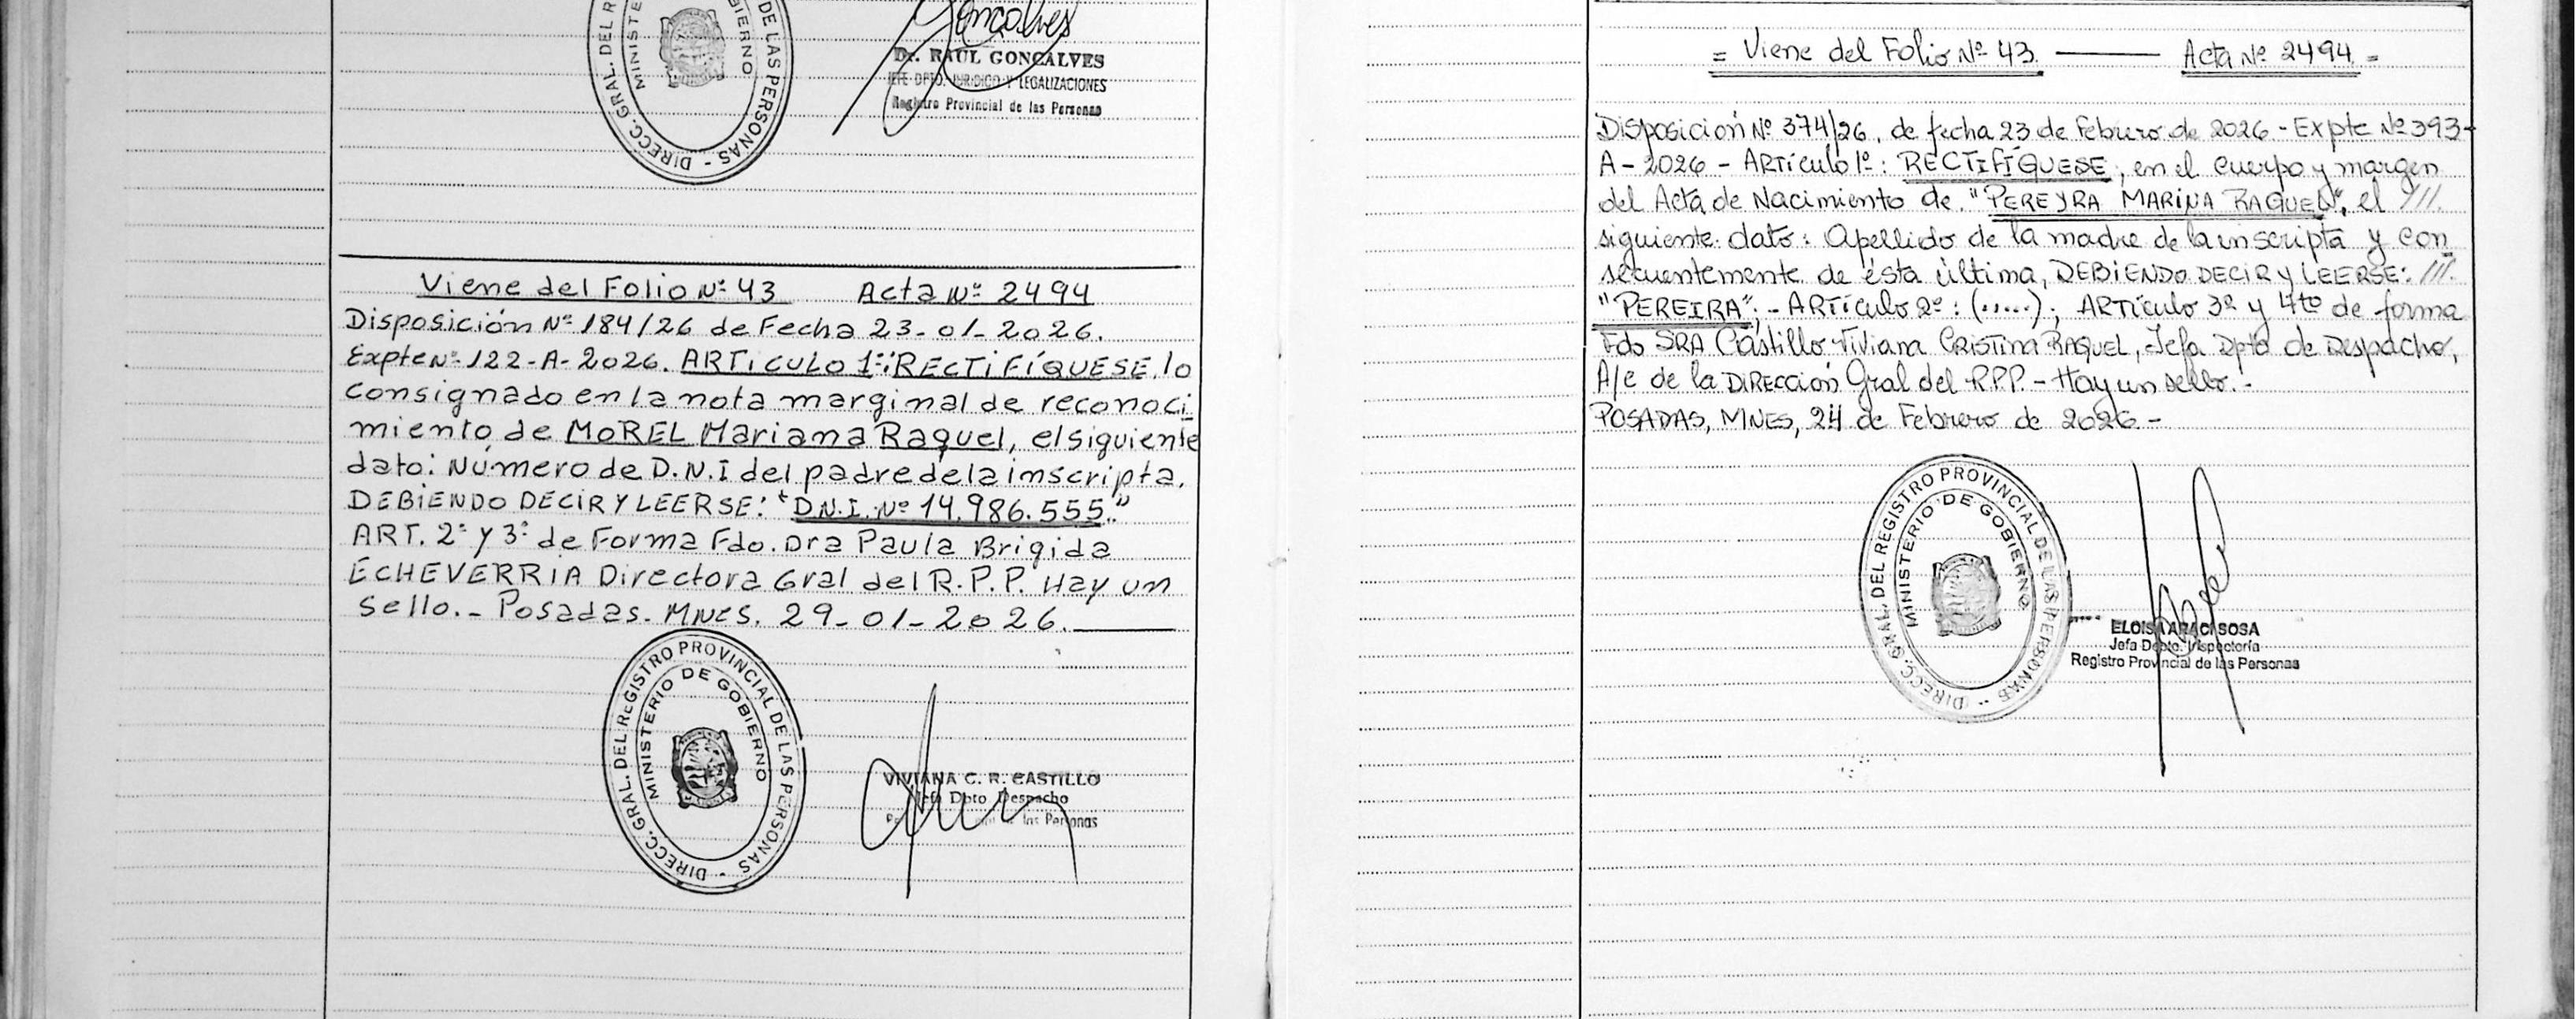 DIRECC. GRAL. DEL R
DE LAS PERSONAS -
MINISTE
BIERNO
Goncalves
Dr. RAUL GONCALVES
JEFE DPTO. JURIDICO Y LEGALIZACIONES
Registro Provincial de las Personas
Viene del Folio Nº 43 Acta Nº 2494
Disposición Nº 184/26 de Fecha 23-01-2026.
Expte Nº 122-A-2026. ARTICULO 1º: RECTIFÍQUESE, lo
consignado en la nota marginal de reconoci
miento de MOREL Mariana Raquel, el siguiente
dato: Número de D.N.I del padre de la inscripta.
DEBIENDO DECIR Y LEERSE: "D.N.I. Nº 14.986.555."
ART. 2º y 3º de Forma Fdo. Dra Paula Brigida
ECHEVERRIA Directora Gral del R.P.P. Hay un
sello.- Posadas. MNES. 29-01-2026.
DIRECC. GRAL. DEL REGISTRO PROVINCIAL DE LAS PERSONAS -
MINISTERIO DE GOBIERNO
VIVIANA C. R. CASTILLO
Jefa Dpto. Despacho
de las Personas
= Viene del Folio Nº 43. Acta Nº 2494 =
Disposición Nº 374/26, de fecha 23 de Febrero de 2026 - Expte Nº 393-
A-2026 - ARTículo 1º: RECTIFÍQUESE, en el cuerpo y margen
del Acta de Nacimiento de "PEREYRA MARINA RAQUEL", el ///.
siguiente dato: Apellido de la madre de la inscripta y con
secuentemente de ésta última, DEBIENDO DECIR Y LEERSE: ///.
"PEREIRA"; - ARTículo 2º: (.....); ARTículo 3º y 4to de forma
Fdo SRA Castillo Viviana CRISTINA RAQUEL, Jefa Dpto de Despacho,
A/c de la DIRECCIÓN Gral del R.P.P. - Hay un sello. -
POSADAS, MNES, 24 de Febrero de 2026 -
DIRECC. GRAL. DEL REGISTRO PROVINCIAL DE LAS PERSONAS -
MINISTERIO DE GOBIERNO
ELOISA ARACI SOSA
Jefa Depto. Inspectoría
Registro Provincial de las Personas